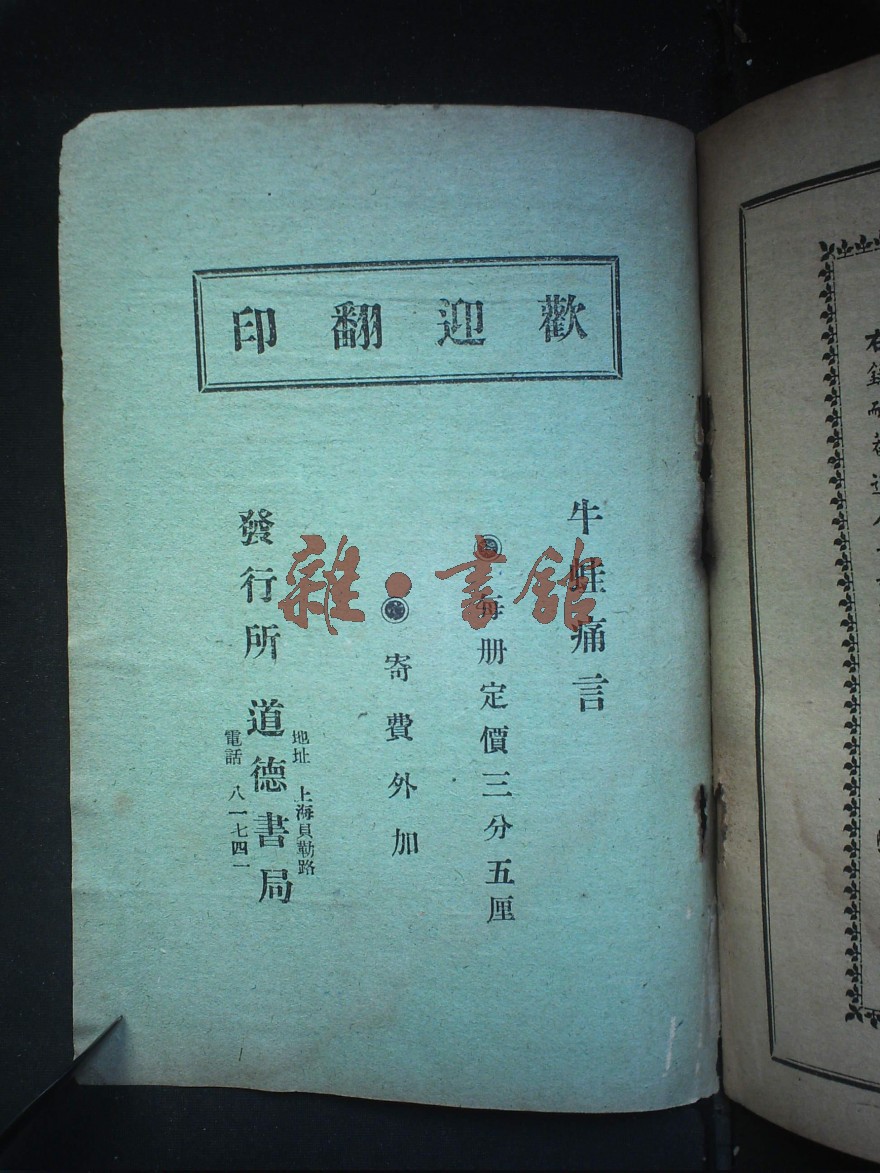 歡迎翻印
牛蛙痛言
每册定價三分五厘
寄費外加
發行所 道德書局
地址 上海貝勒路
電話 八一七四一
雜·書館